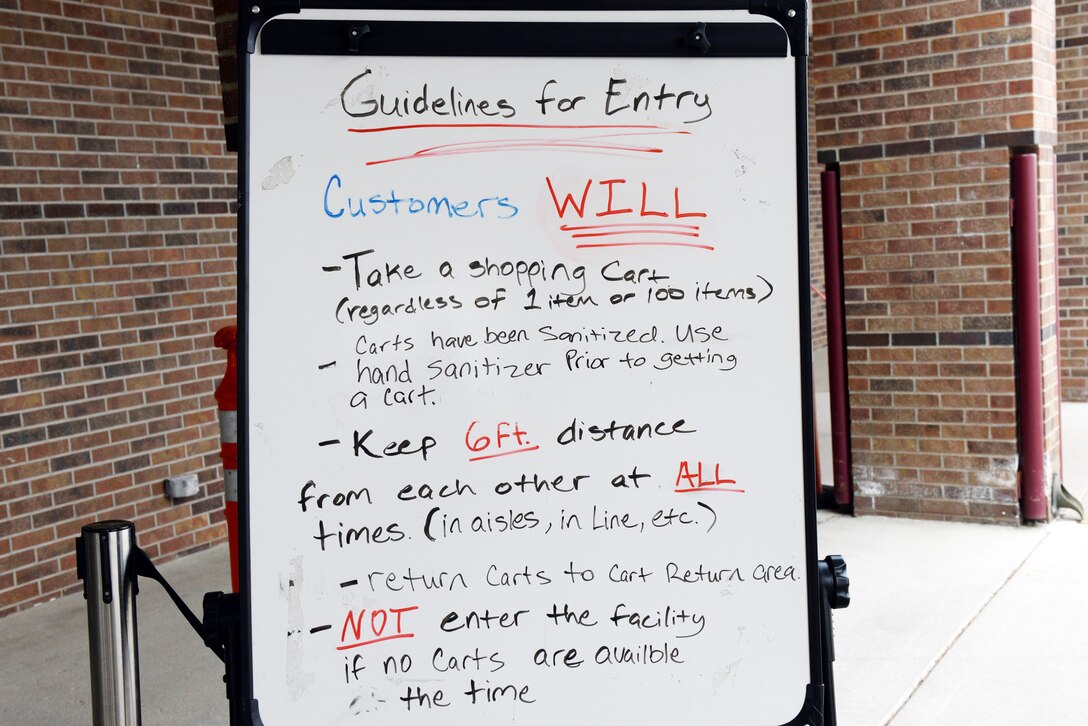 Guidelines for Entry
Customers WILL
- Take a shopping Cart
(regardless of 1 item or 100 items)
Carts have been Sanitized. Use
- hand Sanitizer Prior to getting
a Cart.
- Keep 6ft. distance
from each other at ALL
times. (in aisles, in Line, etc.)
- return Carts to Cart Return area.
- NOT enter the facility
if no Carts are availble
the time